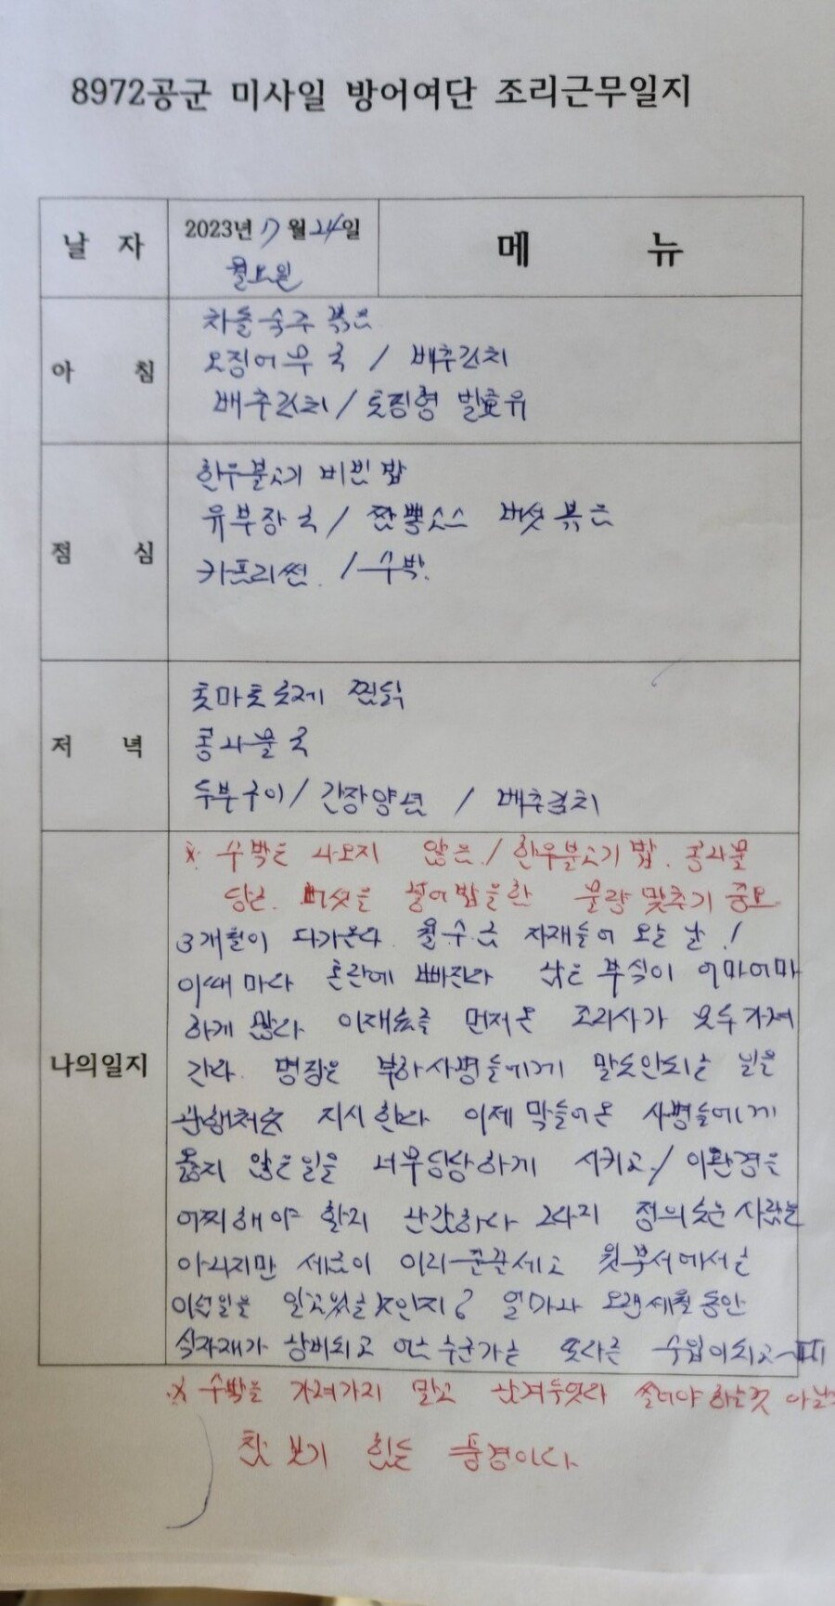 8972공군 미사일 방어여단 조리근무일지
날 자
2023년 7월 24일
월요일
메 뉴
아 침
차돌숙주 볶음
오징어무국 / 배추김치
배추김치 / 토핑형 발효유
점 심
한우불고기 비빈밥
유부장국 / 짬뽕소스 버섯볶음
카프리썬. / 수박.
저 녁
찜닭
콩나물국
두부구이 / 간장양념 / 배추김치
나의일지
※ 수박은 나오지 않음. / 한우불고기밥. 콩나물
당근. 버섯을 넣어 밥을한 물량 맞추기 중요
3개월이 다가온다. 월수금 자재들이 오는 날!
이때마다 혼란에 빠진다 남은 부식이 어마어마
하게 많다 이재료를 먼저온 조리사가 모두가져
간다. 명장은 부하사병들에게 말도안되는 일을
관행처럼 지시한다 이제 막들어온 사병들에게
옳지 않은일을 너무당당하게 시키고 / 이환경을
어찌해야 할지 난감하다 2사지 정의로운 사람은
아니지만 세금이 이리 줄줄세고 윗부서에서는
이런일을 알고있는것인지? 얼마나 오랜세월동안
식자재가 낭비되고 어느누군가는 또다른 수입이되고
※ 수박을 가져가지 말고 남겨두엇다 쓸어야하는것 아닌
참 보기 힘든 풍경이다.